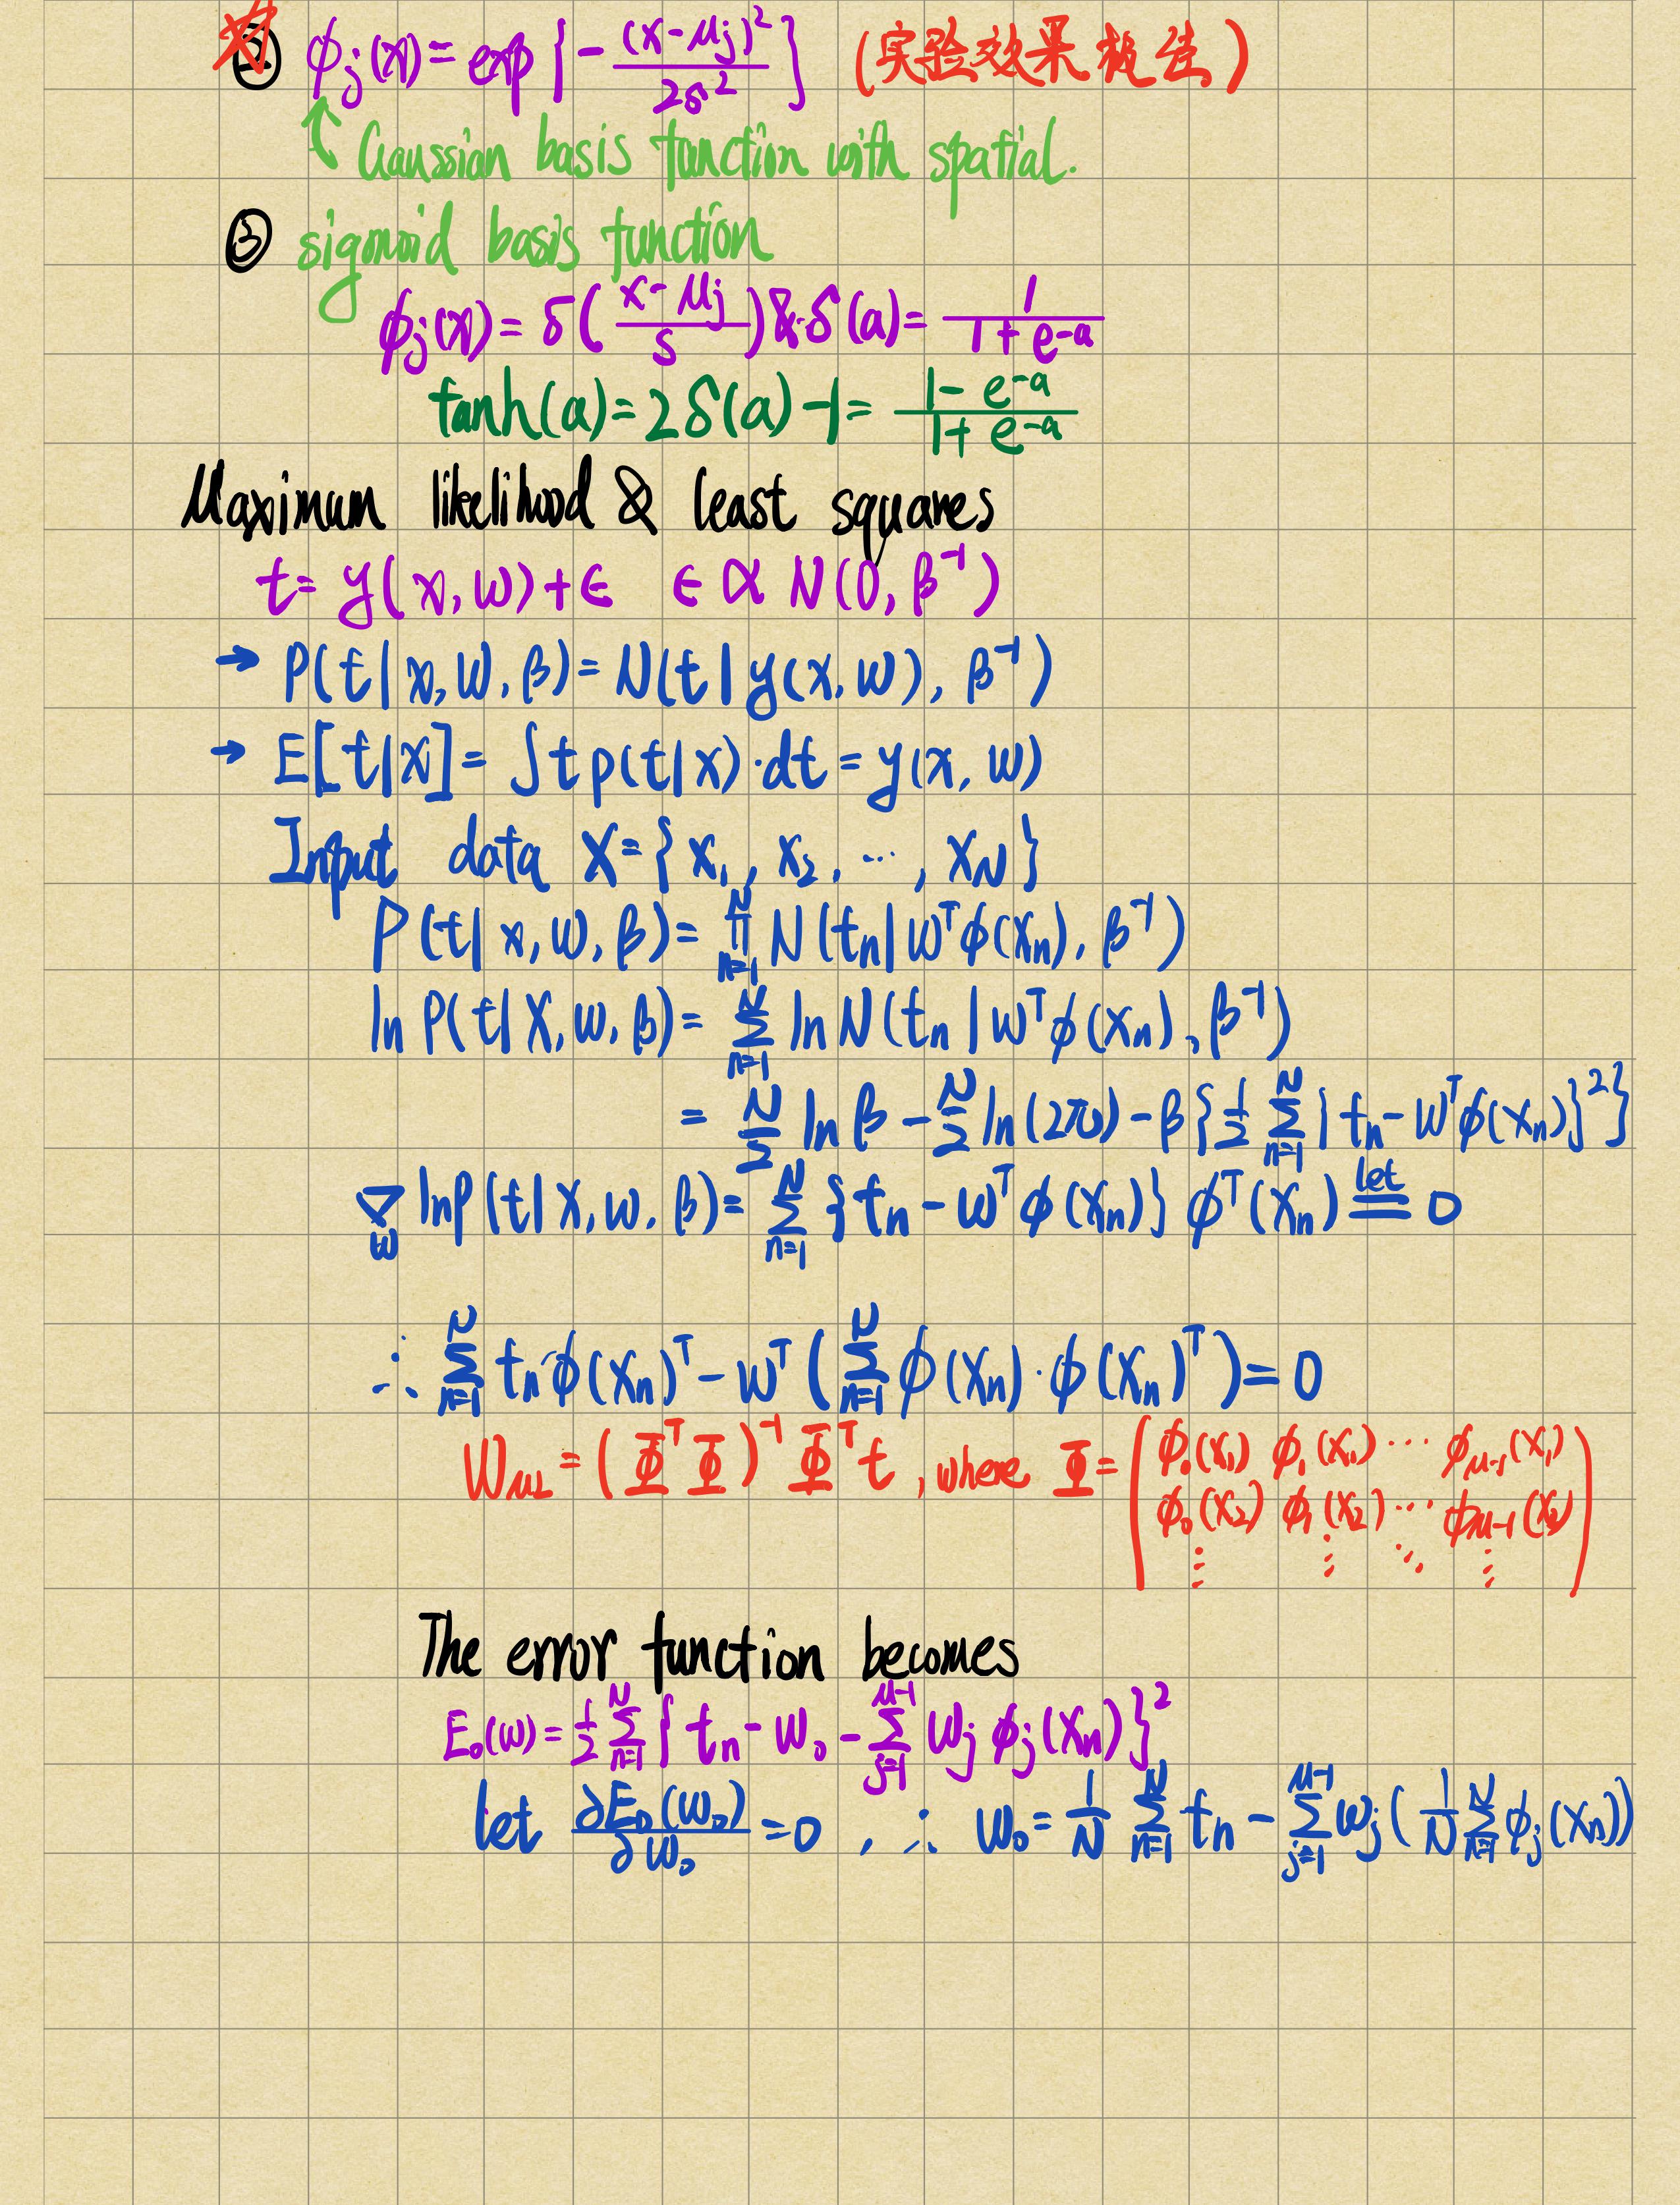 ② ϕj(x) = exp{-(x-μj)²/2s²} (实验效果极佳)
Gaussian basis function with spatial.
③ sigmoid basis function
ϕj(x) = δ((x-μj)/s) & δ(a) = 1/(1+e^-a)
tanh(a) = 2δ(a) - 1 = (1-e^-a)/(1+e^-a)
Maximum likelihood & least squares
t = y(x,w) + ϵ ϵ ∝ N(0, β⁻¹)
→ P(t|x,w,β) = N(t|y(x,w), β⁻¹)
→ E[t|x] = ∫t p(t|x)·dt = y(x,w)
Input data X = {x₁, x₂, ..., x_N}
P(t|x,w,β) = ∏_{n=1}^{N} N(tn|wᵀϕ(xn), β⁻¹)
ln P(t|X,w,β) = Σ_{n=1}^{N} ln N(tn|wᵀϕ(xn), β⁻¹)
= N/2 ln β - N/2 ln(2π) - β{1/2 Σ_{n=1}^{N} {tn - wᵀϕ(xn)}²}
∇_w lnP(t|X,w,β) = Σ_{n=1}^{N} {tn - wᵀϕ(xn)} ϕᵀ(xn) let = 0
∴ Σ_{n=1}^{N} tn ϕ(xn)ᵀ - wᵀ(Σ_{n=1}^{N} ϕ(xn)·ϕ(xn)ᵀ) = 0
W_ML = (ΦᵀΦ)⁻¹Φᵀt, where Φ = ( ϕ₀(x₁) ϕ₁(x₁) ... ϕ_{M-1}(x₁)
ϕ₀(x₂) ϕ₁(x₂) ... ϕ_{M-1}(x₂)
⋮ ⋮ ⋱ ⋮ )
The error function becomes
E_D(w) = 1/2 Σ_{n=1}^{N} {tn - w₀ - Σ_{j=1}^{M-1} wj ϕj(xn)}²
let ∂E_D(w₀)/∂w₀ = 0, ∴ w₀ = 1/N Σ_{n=1}^{N} tn - Σ_{j=1}^{M-1} wj(1/N Σ_{n=1}^{N} ϕj(xn))